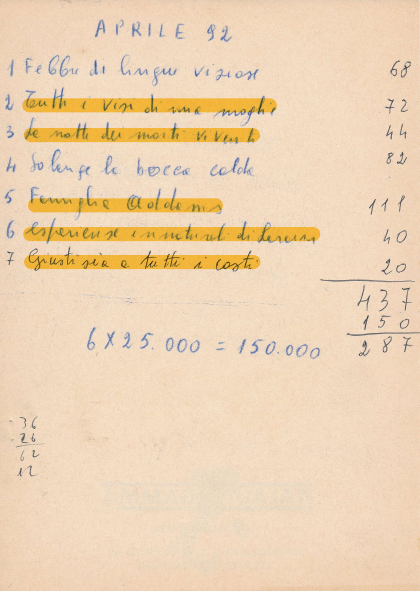 APRILE 92
1 Febbre di lingue viziose 68
2 Tutti i vizi di una moglie 72
3 La notte dei morti viventi 44
4 Solange la bocca calda 82
5 Famiglia Addams 111
6 esperienze innaturali di 40
7 Giustizia a tutti i costi 20
437
150
287
6 X 25.000 = 150.000
36
26
62
12